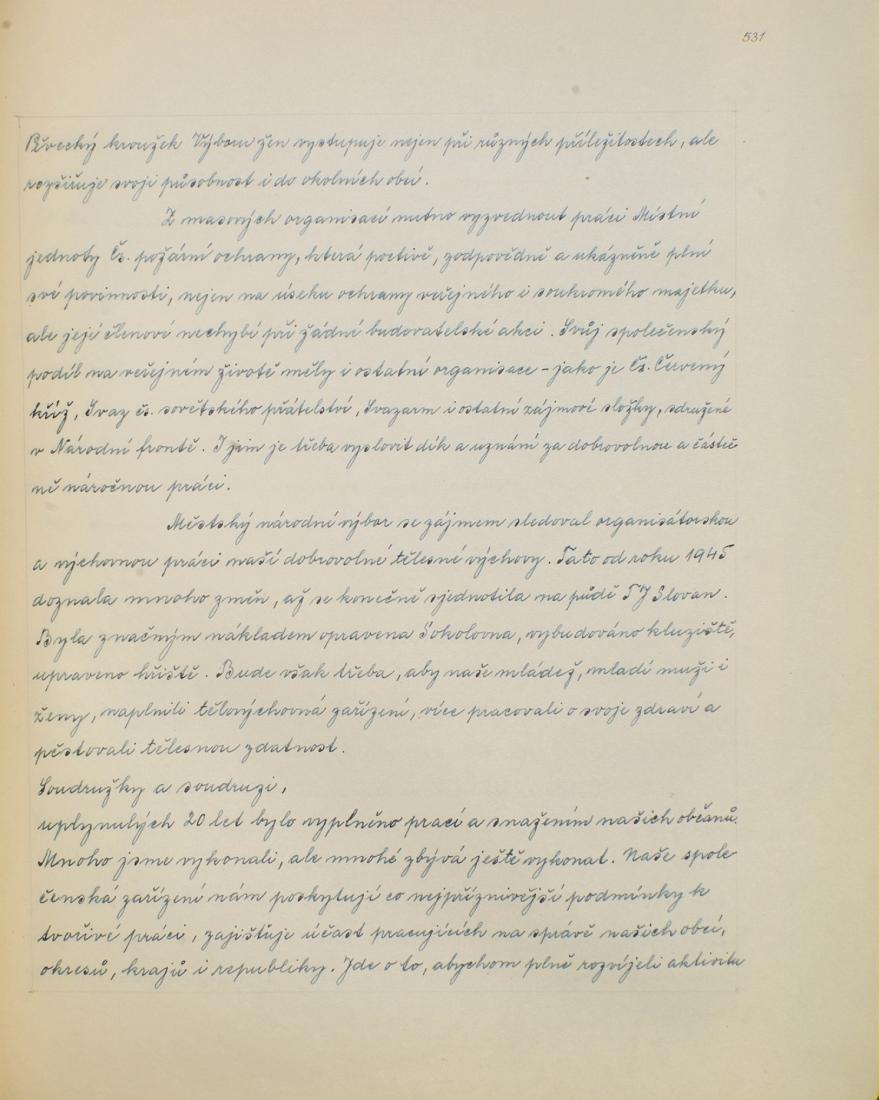 531
Pěvecký kroužek Výboru žen vystupuje nejen při různých příležitostech, ale
rozšiřuje svoji působnost i do okolních obcí.
Z masových organisací nutno vyzvednout práci Místní
jednoty Čs. požární ochrany, která poctivě, zodpovědně a ukázněně plní
své povinnosti, nejen na úseku ochrany veřejného i soukromého majetku,
ale její členové nechybí při žádné budovatelské akci. Svůj společenský
podíl na veřejném životě měly i ostatní organisace - jako je Čs. Červený
kříž, Svaz čs. sovětského přátelství, Svazarm i ostatní zájmové složky, sdružené
v Národní frontě. I jim je třeba vyslovit dík a uznání za dobrovolnou a částeč
ně náročnou práci.
Městský národní výbor se zájmem sledoval organisátorskou
a výchovnou práci naší dobrovolné tělesné výchovy. Tato od roku 1945
doznala mnoho změn, až se konečně sjednotila na půdě TJ Slovan.
Byla značným nákladem opravena Sokolovna, vybudováno kluziště,
upraveno hřiště. Bude však třeba, aby naše mládež, mladí muži i
ženy, naplnili tělovýchovná zařízení, více pracovali o svoje zdraví a
pěstovali tělesnou zdatnost.
Soudružky a soudruzi,
uplynulých 20 let bylo vyplněno prací a snažením našich občanů.
Mnoho jsme vykonali, ale mnohé zbývá ještě vykonat. Naše spole
čenská zařízení nám poskytují co nejpříznivější podmínky k
tvořivé práci, zajišťuje účast pracujících na správě našich obcí,
okresů, krajů i republiky. Jde o to, abychom plně rozvíjeli aktivitu